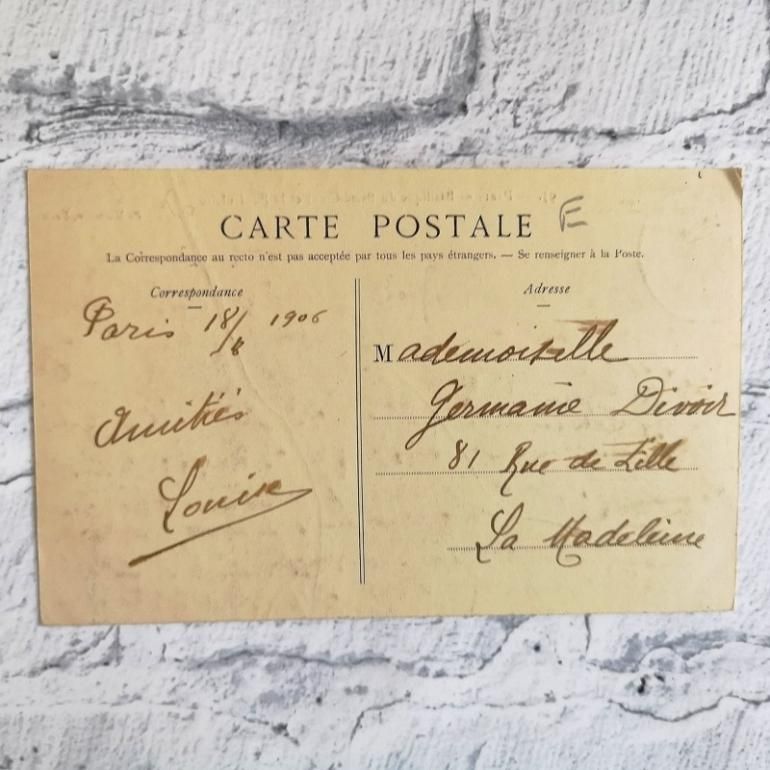 CARTE POSTALE E
La Correspondance au recto n'est pas acceptée par tous les pays étrangers. — Se renseigner à la Poste.
Correspondance
Paris 18/8 1906
Amitiés
Louise
Adresse
Mademoiselle
Germaine Divoir
81 Rue de Lille
La Madeleine